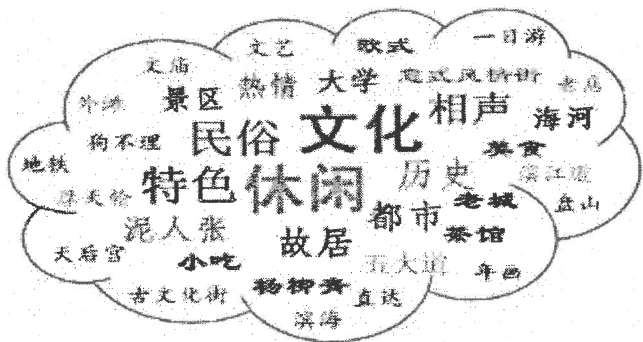 文艺 欧式 一日游
文庙 热情 大学 意式风情街 老店
外滩 景区 民俗 文化 相声 海河
狗不理 美食
地铁 特色 休闲 历史 滨江道
摩天轮 老城 盘山
泥人张 故居 都市 茶馆
天后宫 小吃 五大道 年画
古文化街 杨柳青 直达
滨海